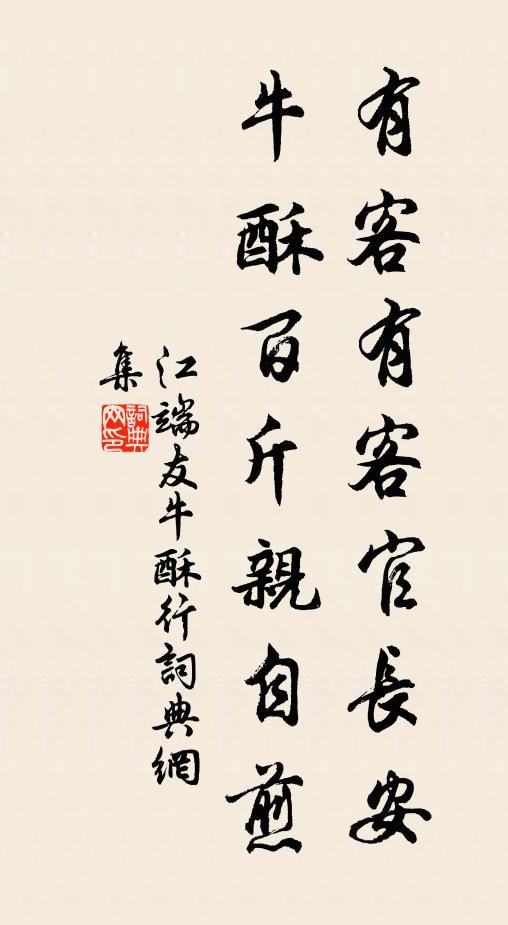 有客有客官長安
牛酥百斤親自煎
江端友牛酥行詞典網
集
詞典
网印